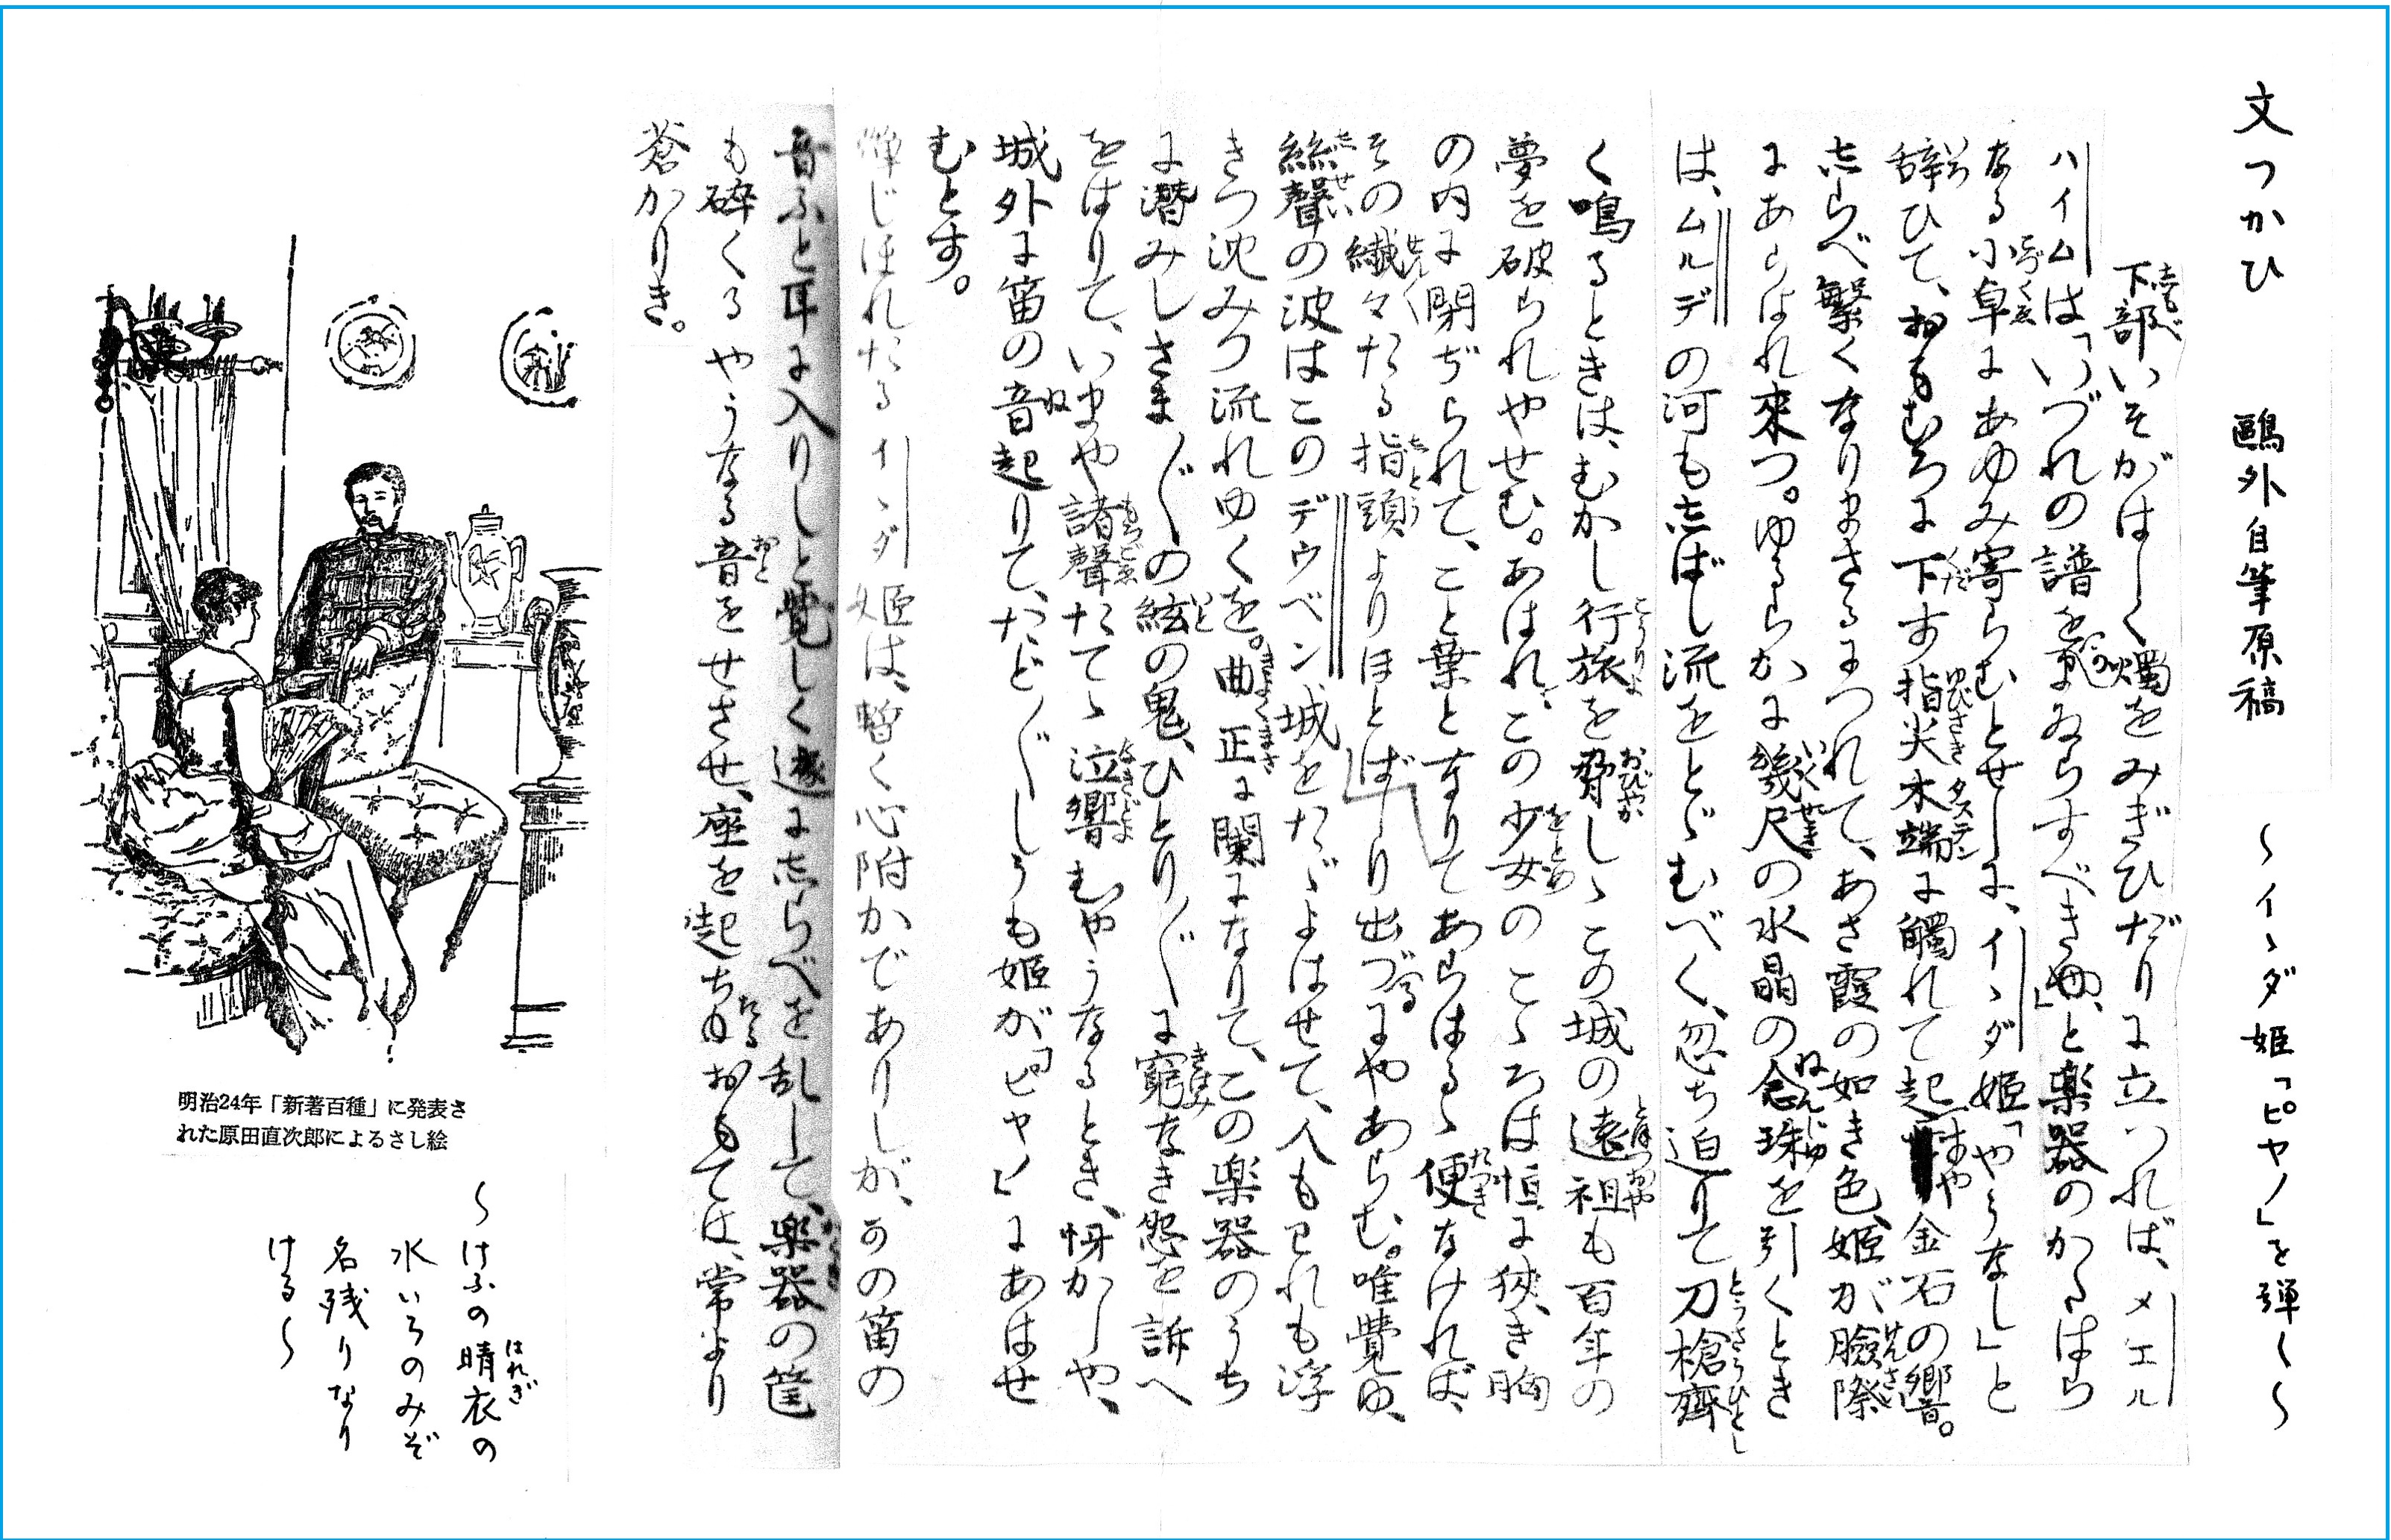 文つかひ　鷗外自筆原稿　〜イヽダ姫「ピヤノ」を弾く〜
下部いそがはしく燭をみぎひだりに立つれば、メエル
ハイムは「いづれの譜をまゐらすべき」と楽器のかたはら
なる小卓にあゆみ寄らむとせしに、イヽダ姫「やうなし」と
辞ひて、おもむろに下す指尖木端に觸れて起すや金石の響。
志らべ繁くなりまさるにつれて、あさ霞の如き色、姫が臉際
にあらはれ來つ。ゆるらかに幾尺の水晶の念珠を引くとき
は、ムルデの河も志ばし流をとゞむべく、忽ち迫りて刀槍齊
く鳴るときは、むかし行旅を脅しゝこの城の遠祖も百年の
夢を破られやせむ。あはれ、この少女のこゝろは恒に狹き胸
の内に閉ぢられて、こと葉となりてあらはるゝ便なければ、
その纖々たる指頭よりほとばしり出づるにやあらむ。唯覺ゆ、
絲聲の波はこのデウベン城をたゞよはせて、人もわれも浮
きつ沈みつ流れゆくを。曲正に闌になりて、この楽器のうち
に潜みしさま〲の絃の鬼、ひとり〲に窮なき怨を訴へ
をはりて、いまや諸聲たてゝ泣響むやうなるとき、怪かしや、
城外に笛の音起りて、たど〲しうも姫が「ピヤノ」にあはせ
むとす。
弾じほれたるイヽダ姫は、暫く心附かでありしが、かの笛の
音ふと耳に入りしと覺しく遽に志らべを乱して、楽器の筐
も碎くるやうなる音をせさせ、座を起ちたるおもては、常より
蒼かりき。
明治24年「新著百種」に発表さ
れた原田直次郎によるさし絵
〜けふの晴衣の
水いろのみぞ
名残りなり
ける〜